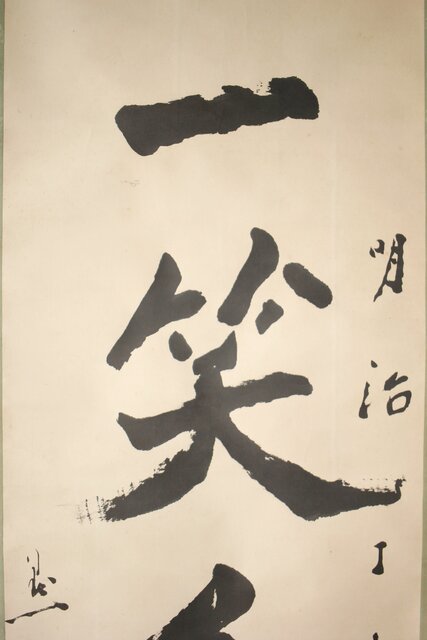 明治丁
一笑